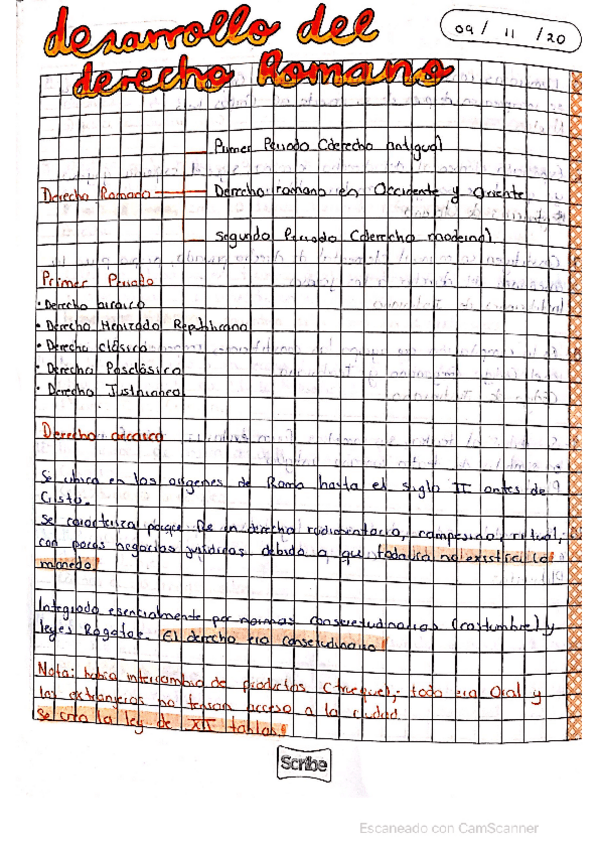 desarrollo del
derecho Romano
09 / 11 / 20
Primer Periodo (derecho antigua)
Derecho Romano
Derecho romano en Occidente y Oriente
Segundo Periodo (derecho moderno)
Primer Periodo
• Derecho arcaico
• Derecho Honorado Republicano
• Derecho Clásico
• Derecho Posclásico
• Derecho Justinianeo
Derecho arcaico
Se ubica en los orígenes de Roma hasta el siglo II antes de
Cristo.
Se caracteriza porque es un derecho rudimentario, campesino, ritual,
con pocos negocios jurídicos debido a que todavía no existía la
moneda.
Integrado esencialmente por normas consuetudinarias (costumbre) y
leyes Rogatae. El derecho era consuetudinario
Nota: había intercambio de productos (trueque), todo era Oral y
los extranjeros no tenían acceso a la ciudad.
Se crea la ley de XII tablas.
Scribe
Escaneado con CamScanner